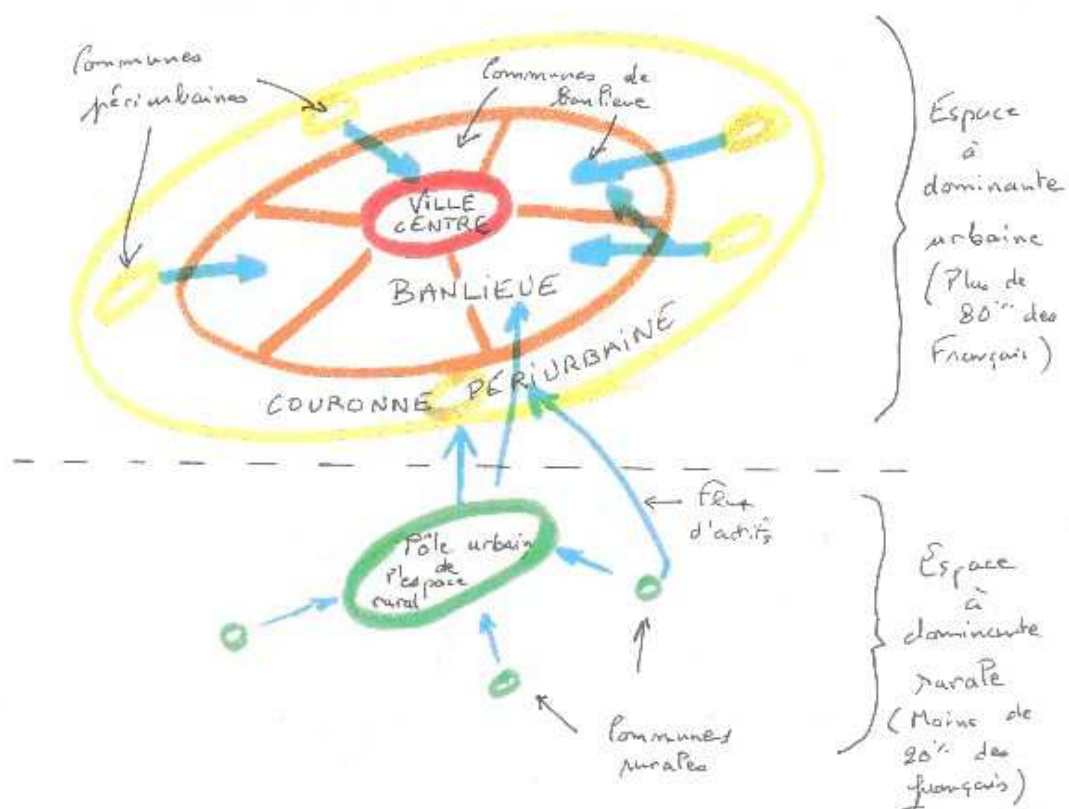 Communes
périurbaines
Communes de
banlieue
VILLE
CENTRE
BANLIEUE
COURONNE PÉRIURBAINE
Espace
à
dominante
urbaine
(Plus de
80% des
Français)
Flux
d'actifs
Pôle urbain
de
l'espace
rural
Communes
rurales
Espace
à
dominante
rurale
(Moins de
20% des
français)